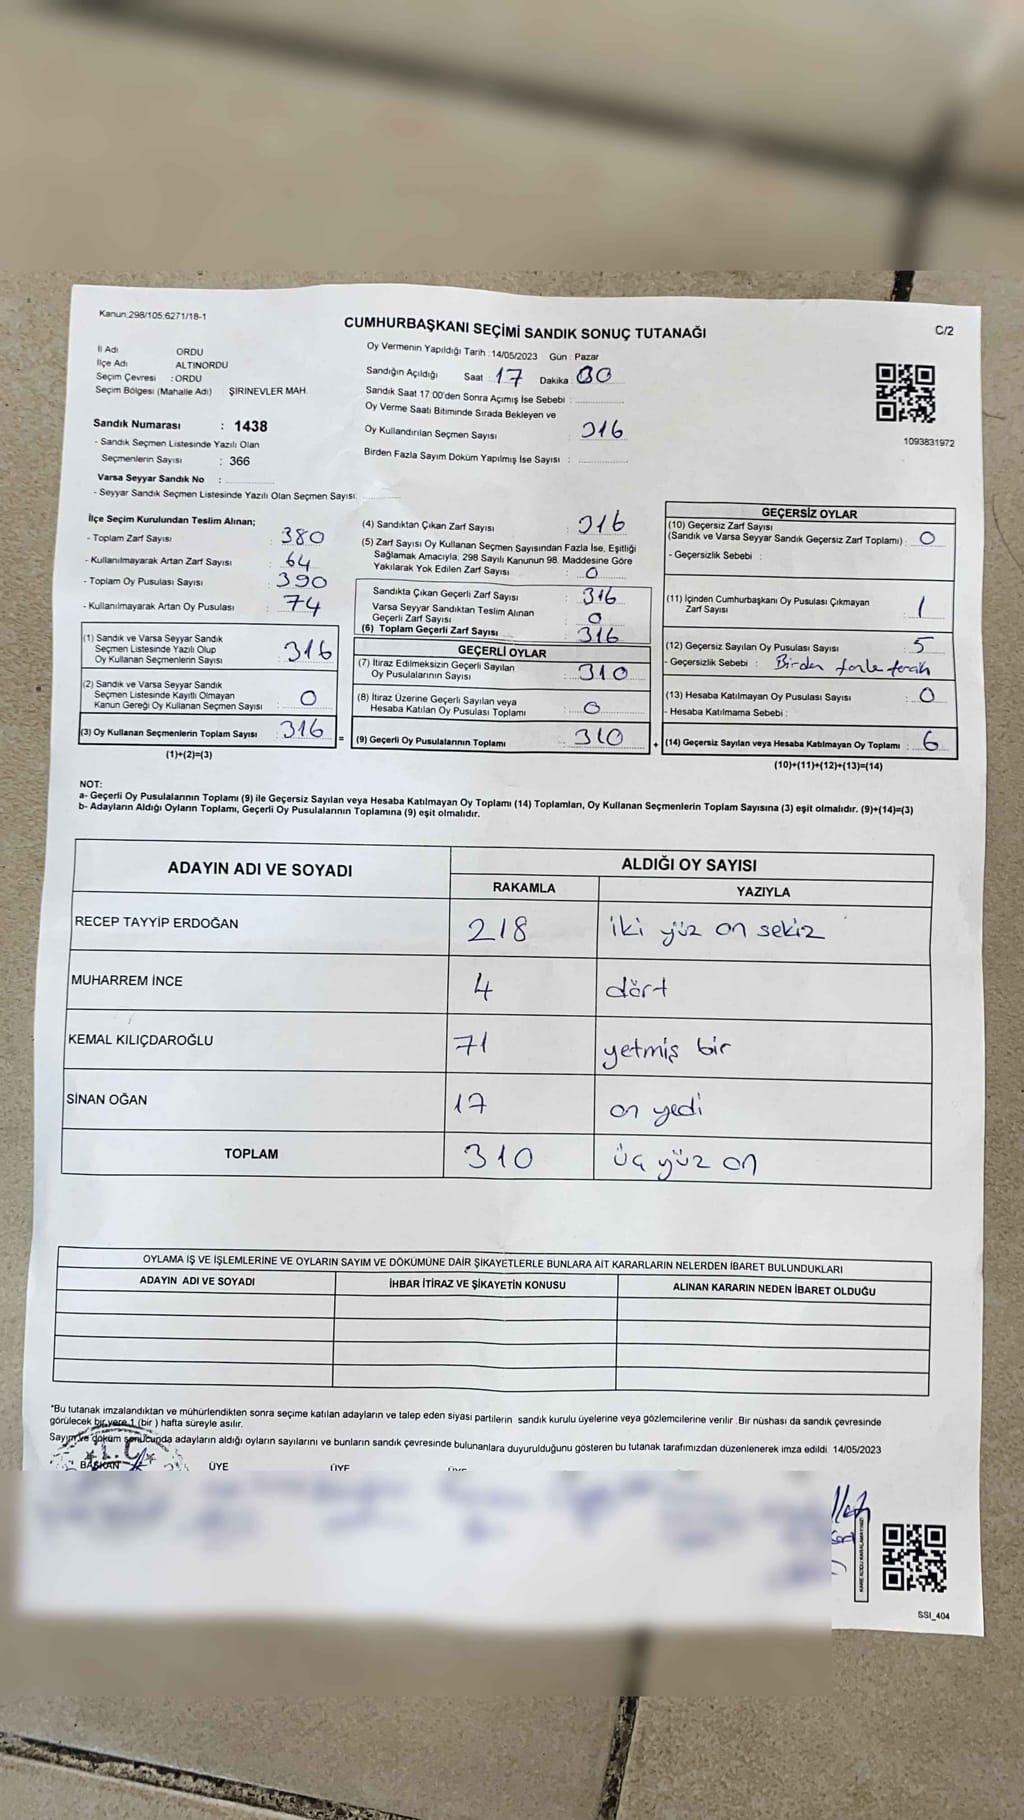 Kanun:298/105,6271/18-1
CUMHURBAŞKANI SEÇİMİ SANDIK SONUÇ TUTANAĞI
C/2
İl Adı ORDU
İlçe Adı ALTINORDU
Seçim Çevresi : ORDU
Seçim Bölgesi (Mahalle Adı) ŞİRİNEVLER MAH.
Oy Vermenin Yapıldığı Tarih : 14/05/2023 Gün : Pazar
Sandığın Açıldığı Saat 17 Dakika : 00
Sandık Saat 17:00'den Sonra Açımış İse Sebebi :
Oy Verme Saati Bitiminde Sırada Bekleyen ve
Oy Kullandırılan Seçmen Sayısı : 316
Birden Fazla Sayım Döküm Yapılmış İse Sayısı :
1093831972
Sandık Numarası : 1438
- Sandık Seçmen Listesinde Yazılı Olan
Seçmenlerin Sayısı : 366
Varsa Seyyar Sandık No :
- Seyyar Sandık Seçmen Listesinde Yazılı Olan Seçmen Sayısı:
İlçe Seçim Kurulundan Teslim Alınan;
- Toplam Zarf Sayısı : 380
- Kullanılmayarak Artan Zarf Sayısı : 64
- Toplam Oy Pusulası Sayısı : 390
- Kullanılmayarak Artan Oy Pusulası : 74
(1) Sandık ve Varsa Seyyar Sandık
Seçmen Listesinde Yazılı Olup
Oy Kullanan Seçmenlerin Sayısı : 316
(2) Sandık ve Varsa Seyyar Sandık
Seçmen Listesinde Kayıtlı Olmayan
Kanun Gereği Oy Kullanan Seçmen Sayısı : 0
(3) Oy Kullanan Seçmenlerin Toplam Sayısı : 316 =
(1)+(2)=(3)
(4) Sandıktan Çıkan Zarf Sayısı : 316
(5) Zarf Sayısı Oy Kullanan Seçmen Sayısından Fazla İse, Eşitliği
Sağlamak Amacıyla, 298 Sayılı Kanunun 98. Maddesine Göre
Yakılarak Yok Edilen Zarf Sayısı : 0
Sandıkta Çıkan Geçerli Zarf Sayısı : 316
Varsa Seyyar Sandıktan Teslim Alınan
Geçerli Zarf Sayısı : 0
(6) Toplam Geçerli Zarf Sayısı : 316
GEÇERLİ OYLAR
(7) İtiraz Edilmeksizin Geçerli Sayılan
Oy Pusulalarının Sayısı : 310
(8) İtiraz Üzerine Geçerli Sayılan veya
Hesaba Katılan Oy Pusulası Toplamı : 0
(9) Geçerli Oy Pusulalarının Toplamı : 310 +
GEÇERSİZ OYLAR
(10) Geçersiz Zarf Sayısı
(Sandık ve Varsa Seyyar Sandık Geçersiz Zarf Toplamı) : 0
- Geçersizlik Sebebi :
(11) İçinden Cumhurbaşkanı Oy Pusulası Çıkmayan
Zarf Sayısı : 1
(12) Geçersiz Sayılan Oy Pusulası Sayısı : 5
- Geçersizlik Sebebi : Birden fazla tercih
(13) Hesaba Katılmayan Oy Pusulası Sayısı : 0
- Hesaba Katılmama Sebebi :
(14) Geçersiz Sayılan veya Hesaba Katılmayan Oy Toplamı : 6
(10)+(11)+(12)+(13)=(14)
NOT:
a- Geçerli Oy Pusulalarının Toplamı (9) ile Geçersiz Sayılan veya Hesaba Katılmayan Oy Toplamı (14) Toplamları, Oy Kullanan Seçmenlerin Toplam Sayısına (3) eşit olmalıdır. (9)+(14)=(3)
b- Adayların Aldığı Oyların Toplamı, Geçerli Oy Pusulalarının Toplamına (9) eşit olmalıdır.
ADAYIN ADI VE SOYADI ALDIĞI OY SAYISI
RAKAMLA YAZIYLA
RECEP TAYYİP ERDOĞAN 218 iki yüz on sekiz
MUHARREM İNCE 4 dört
KEMAL KILIÇDAROĞLU 71 yetmiş bir
SİNAN OĞAN 17 on yedi
TOPLAM 310 üç yüz on
OYLAMA İŞ VE İŞLEMLERİNE VE OYLARIN SAYIM VE DÖKÜMÜNE DAİR ŞİKAYETLERLE BUNLARA AİT KARARLARIN NELERDEN İBARET BULUNDUKLARI
ADAYIN ADI VE SOYADI İHBAR İTİRAZ VE ŞİKAYETİN KONUSU ALINAN KARARIN NEDEN İBARET OLDUĞU
*Bu tutanak imzalandıktan ve mühürlendikten sonra seçime katılan adayların ve talep eden siyasi partilerin sandık kurulu üyelerine veya gözlemcilerine verilir. Bir nüshası da sandık çevresinde
görülecek bir yere 1 (bir) hafta süreyle asılır.
Sayım ve döküm sonucunda adayların aldığı oyların sayılarını ve bunların sandık çevresinde bulunanlara duyurulduğunu gösteren bu tutanak tarafımızdan düzenlenerek imza edildi. 14/05/2023
T.C.
BAŞKAN ÜYE ÜYE ÜYE
KARE KODU KARALAMAYINIZ!
SSI_404